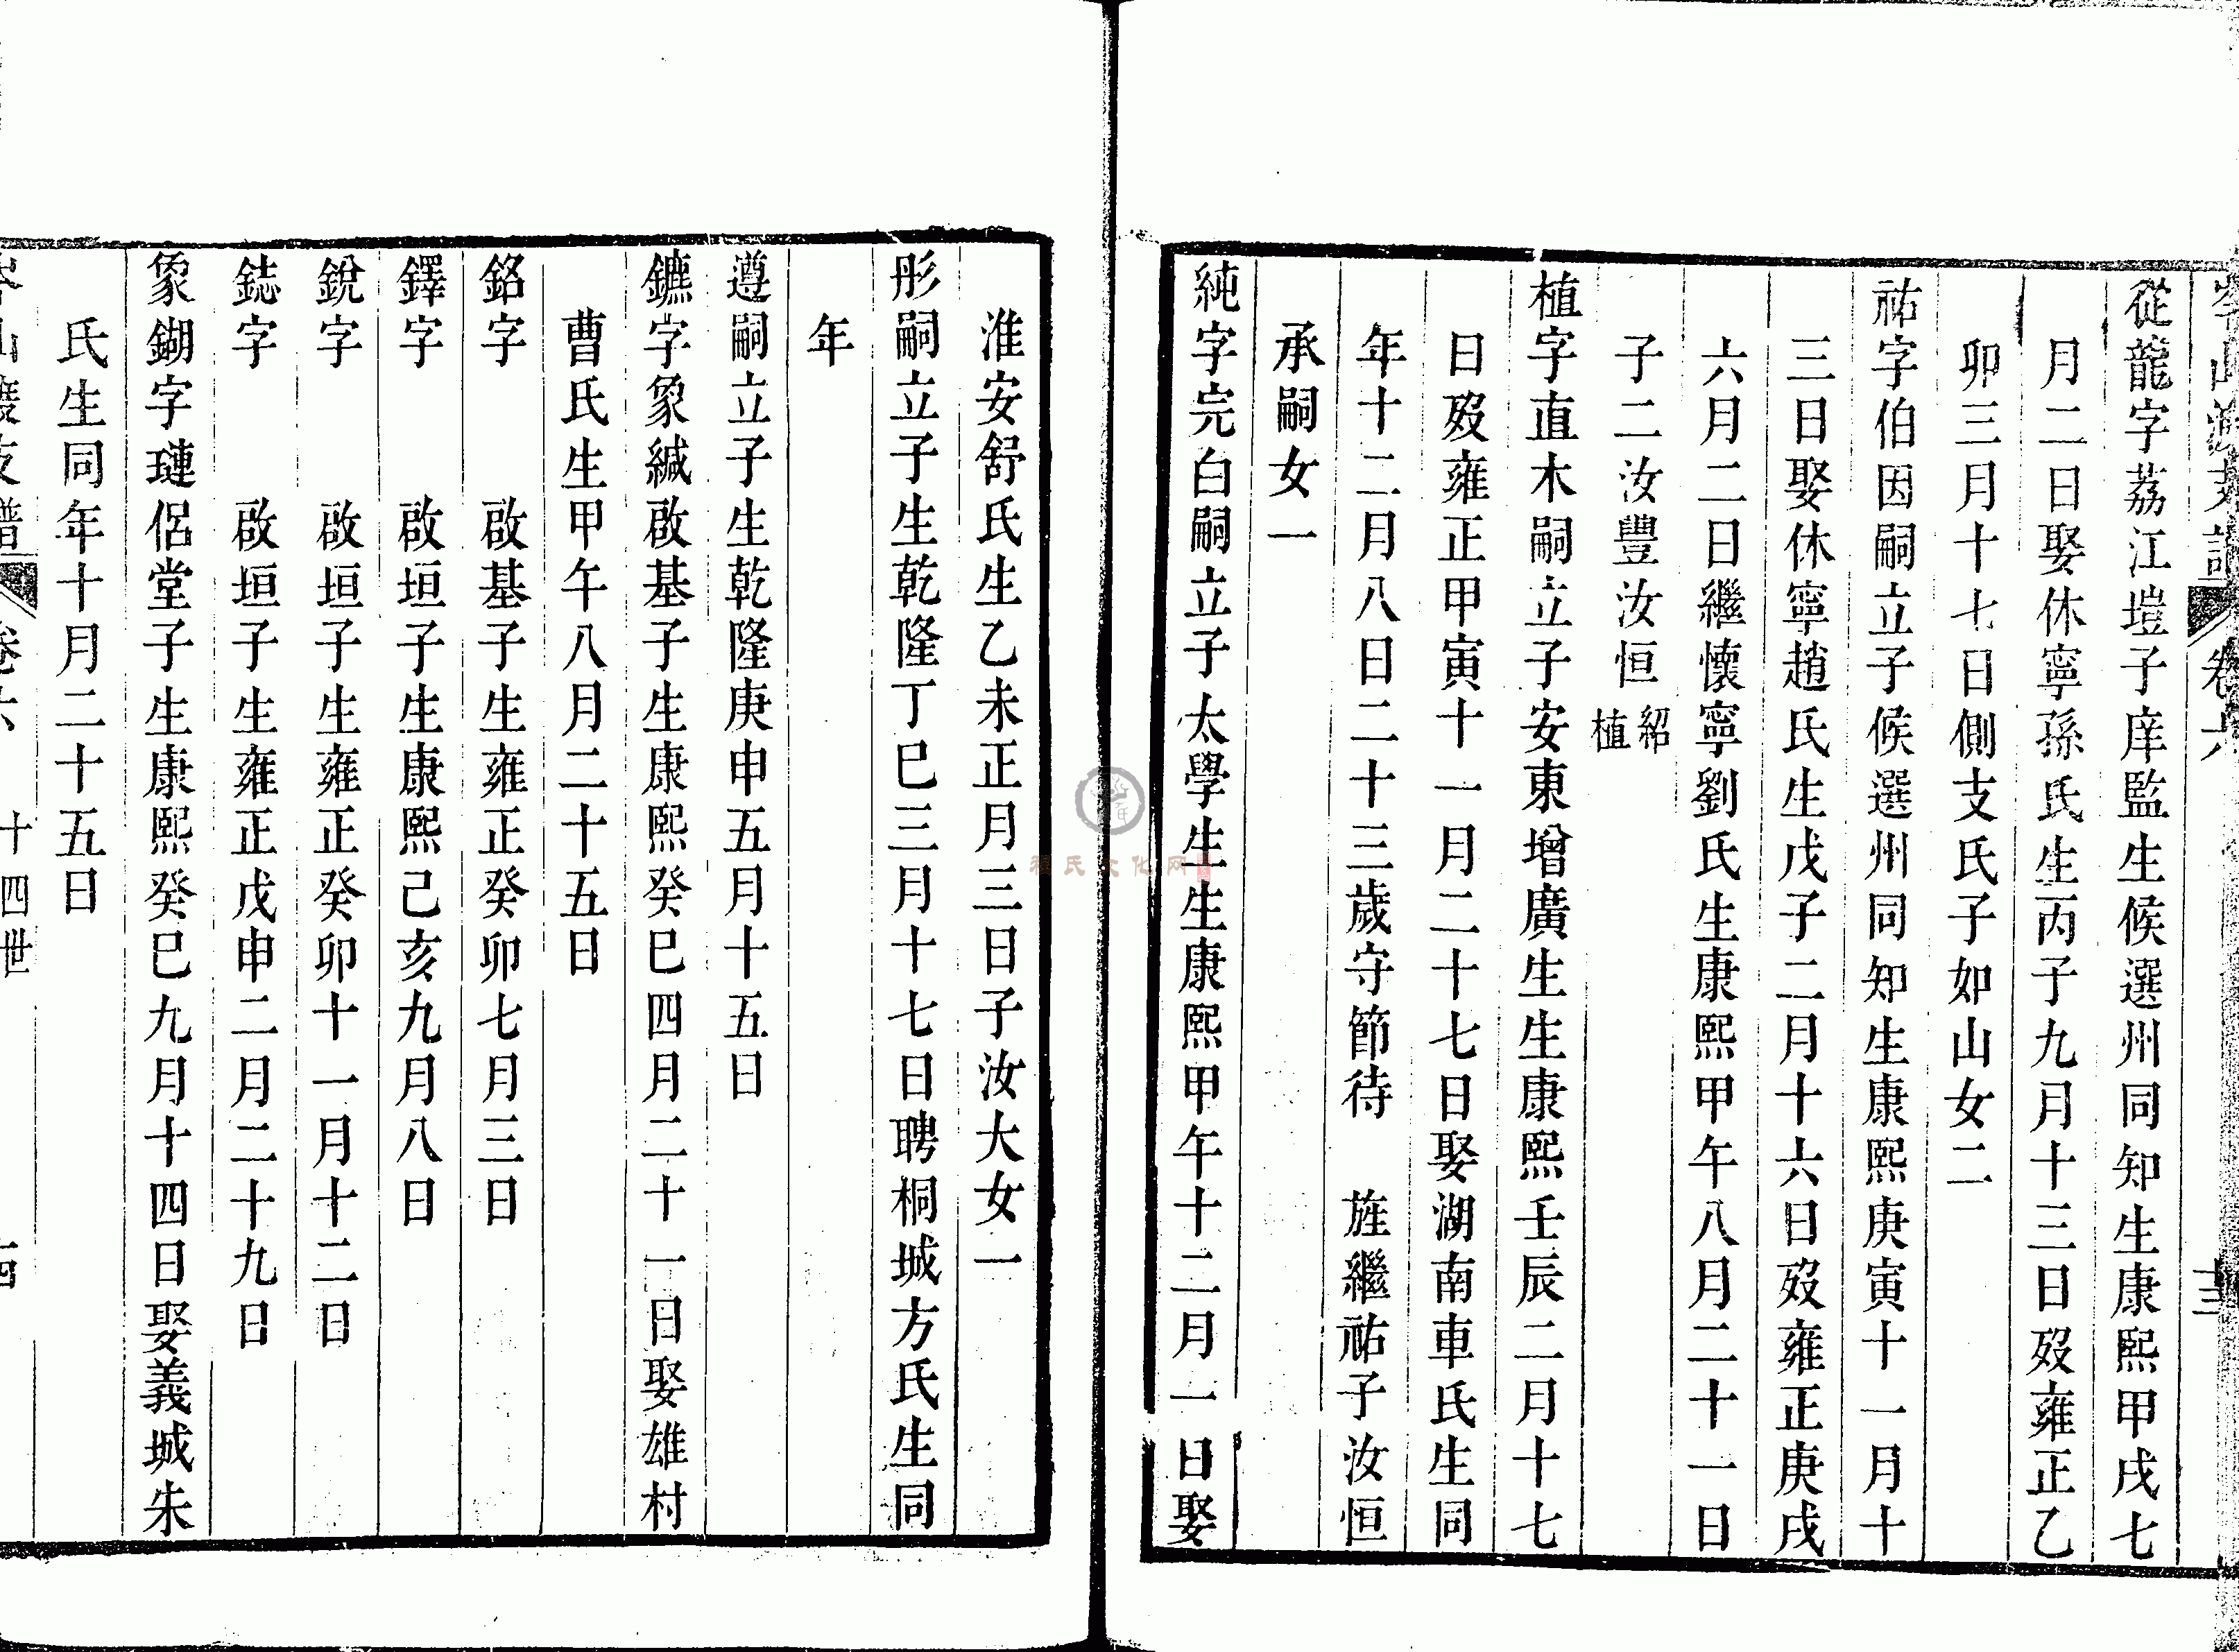 岑山渡支譜 卷六 十三
從龍字荔江塏子庠監生候選州同知生康熙甲戌七
月二日娶休寧孫氏生丙子九月十三日歿雍正乙
卯三月十七日側支氏子如山女二
祐字伯因嗣立子候選州同知生康熙庚寅十一月十
三日娶休寧趙氏生戊子二月十六日歿雍正庚戌
六月二日繼懷寧劉氏生康熙甲午八月二十一日
子二汝豐汝恒紹植
植字直木嗣立子安東增廣生生康熙壬辰二月十七
日歿雍正甲寅十一月二十七日娶湖南車氏生同
年十二月八日二十三歲守節待 旌繼祐子汝恒
承嗣女一
純字完白嗣立子太學生生康熙甲午十二月一日娶
淮安舒氏生乙未正月三日子汝大女一
彤嗣立子生乾隆丁巳三月十七日聘桐城方氏生同
年
遵嗣立子生乾隆庚申五月十五日
鑣字象緘啟基子生康熙癸巳四月二十一日娶雄村
曹氏生甲午八月二十五日
銘字 啟基子生雍正癸卯七月三日
鐸字 啟垣子生康熙己亥九月八日
銳字 啟垣子生雍正癸卯十一月十二日
鋕字 啟垣子生雍正戊申二月二十九日
象鍸字璉侶堂子生康熙癸巳九月十四日娶義城朱
氏生同年十月二十五日
岑山渡支譜 卷六 十四世 十四
程氏文化网